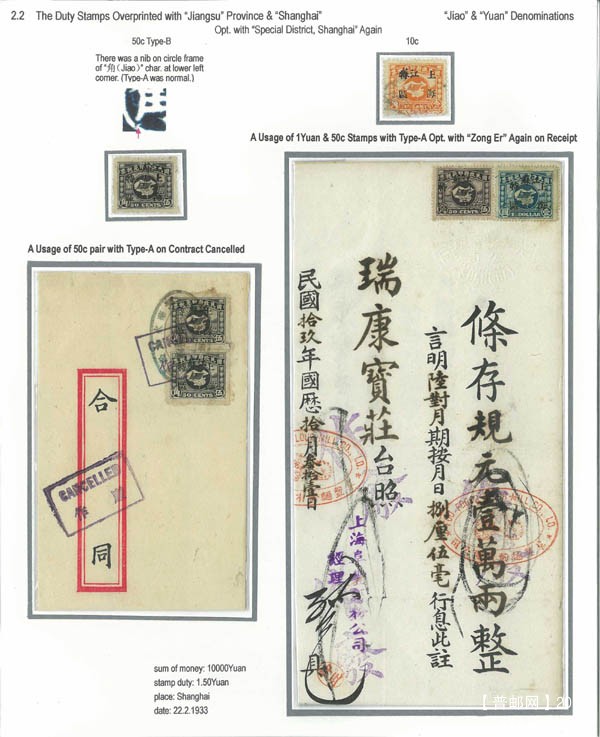 2.2 The Duty Stamps Overprinted with "Jiangsu" Province & "Shanghai"
"Jiao" & "Yuan" Denominations
Opt. with "Special District, Shanghai" Again
50c Type-B
There was a nib on circle frame
of "角(Jiao)" char. at lower left
corner. (Type-A was normal.)
10c
上海
江蘇
A Usage of 1Yuan & 50c Stamps with Type-A Opt. with "Zong Er" Again on Receipt
50 CENTS
50 CENTS
DOLLAR
A Usage of 50c pair with Type-A on Contract Cancelled
50 CENTS
50 CENTS
CANCELLED
合同
CANCELLED
作
條存規元壹萬兩整
言明陸對月期按月日捌厘伍毫行息此註
瑞康寶莊台照
民國拾玖年國歷拾月叁拾壹日
上海
公司
經理
CO. LD.
MILL CO. LD.
sum of money: 10000Yuan
stamp duty: 1.50Yuan
place: Shanghai
date: 22.2.1933
【普邮网】20